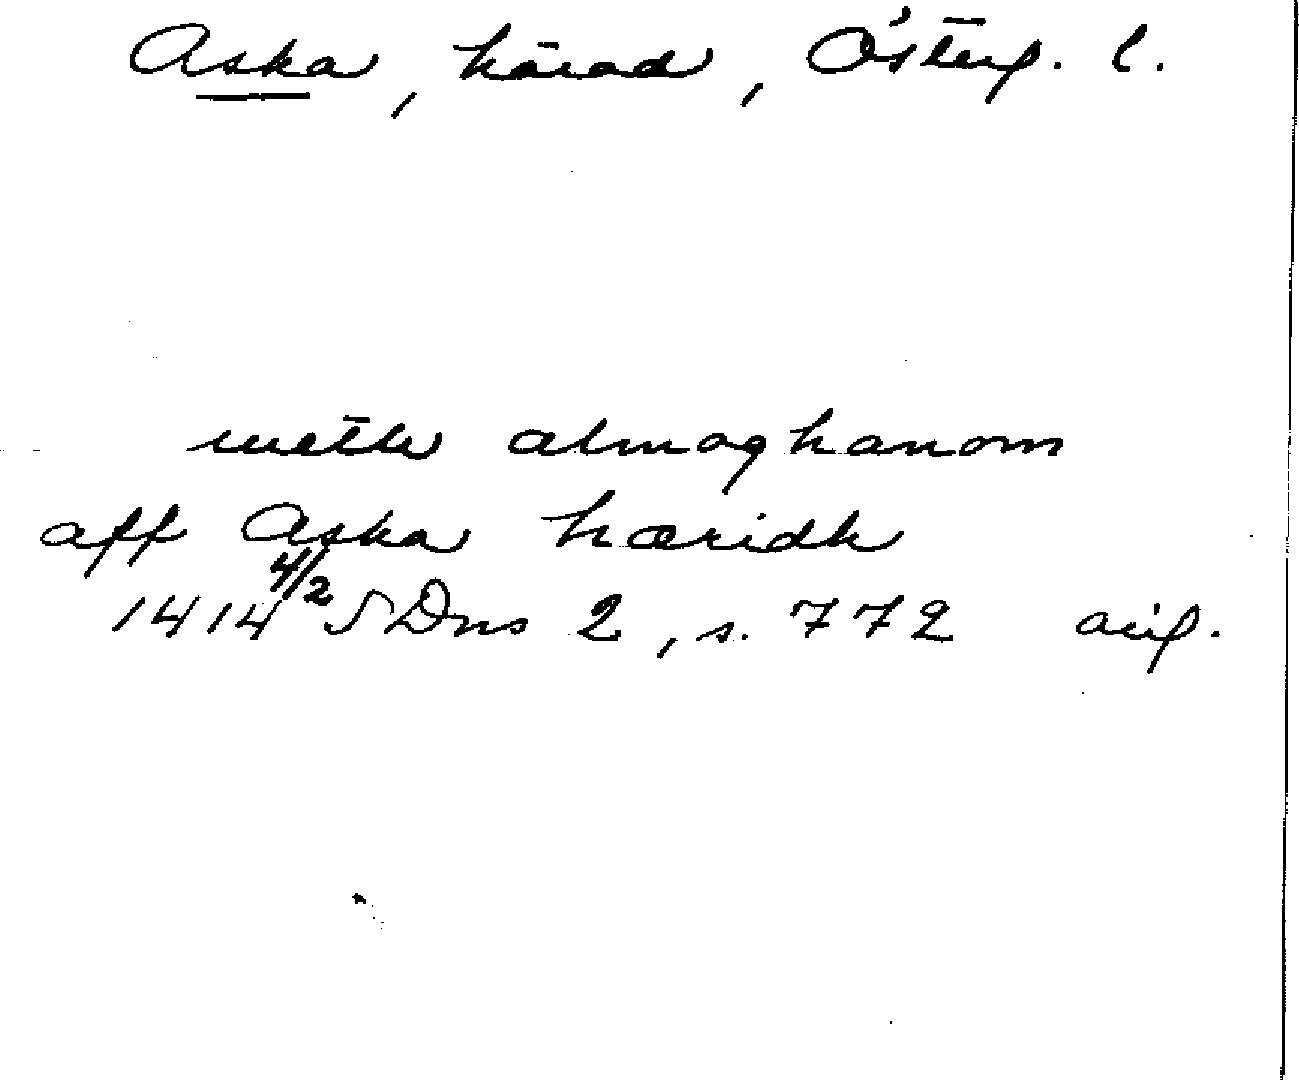 Aska, härad, Österg. l.
meth almoghanom
aff Aska hæridh
1414 4/2 SDns 2, s. 772 avg.